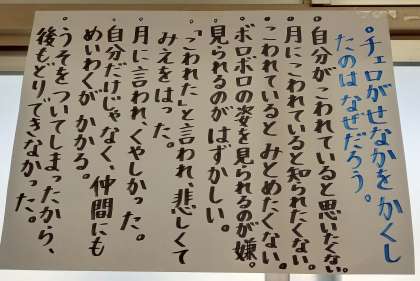 。チェロがせなかをかくし
たのはなぜだろう。
・自分がこわれていると思いたくない。
・月にこわれていると知られたくない。
・こわれているとみとめたくない。
・ボロボロの姿を見られるのが嫌。
・見られるのがはずかしい。
・「こわれた」と言われ、悲しくて
みえをはった。
・月に言われ、くやしかった。
・自分だけじゃなく、仲間にも
めいわくがかかる。
・うそをついてしまったから、
後もどりできなかった。